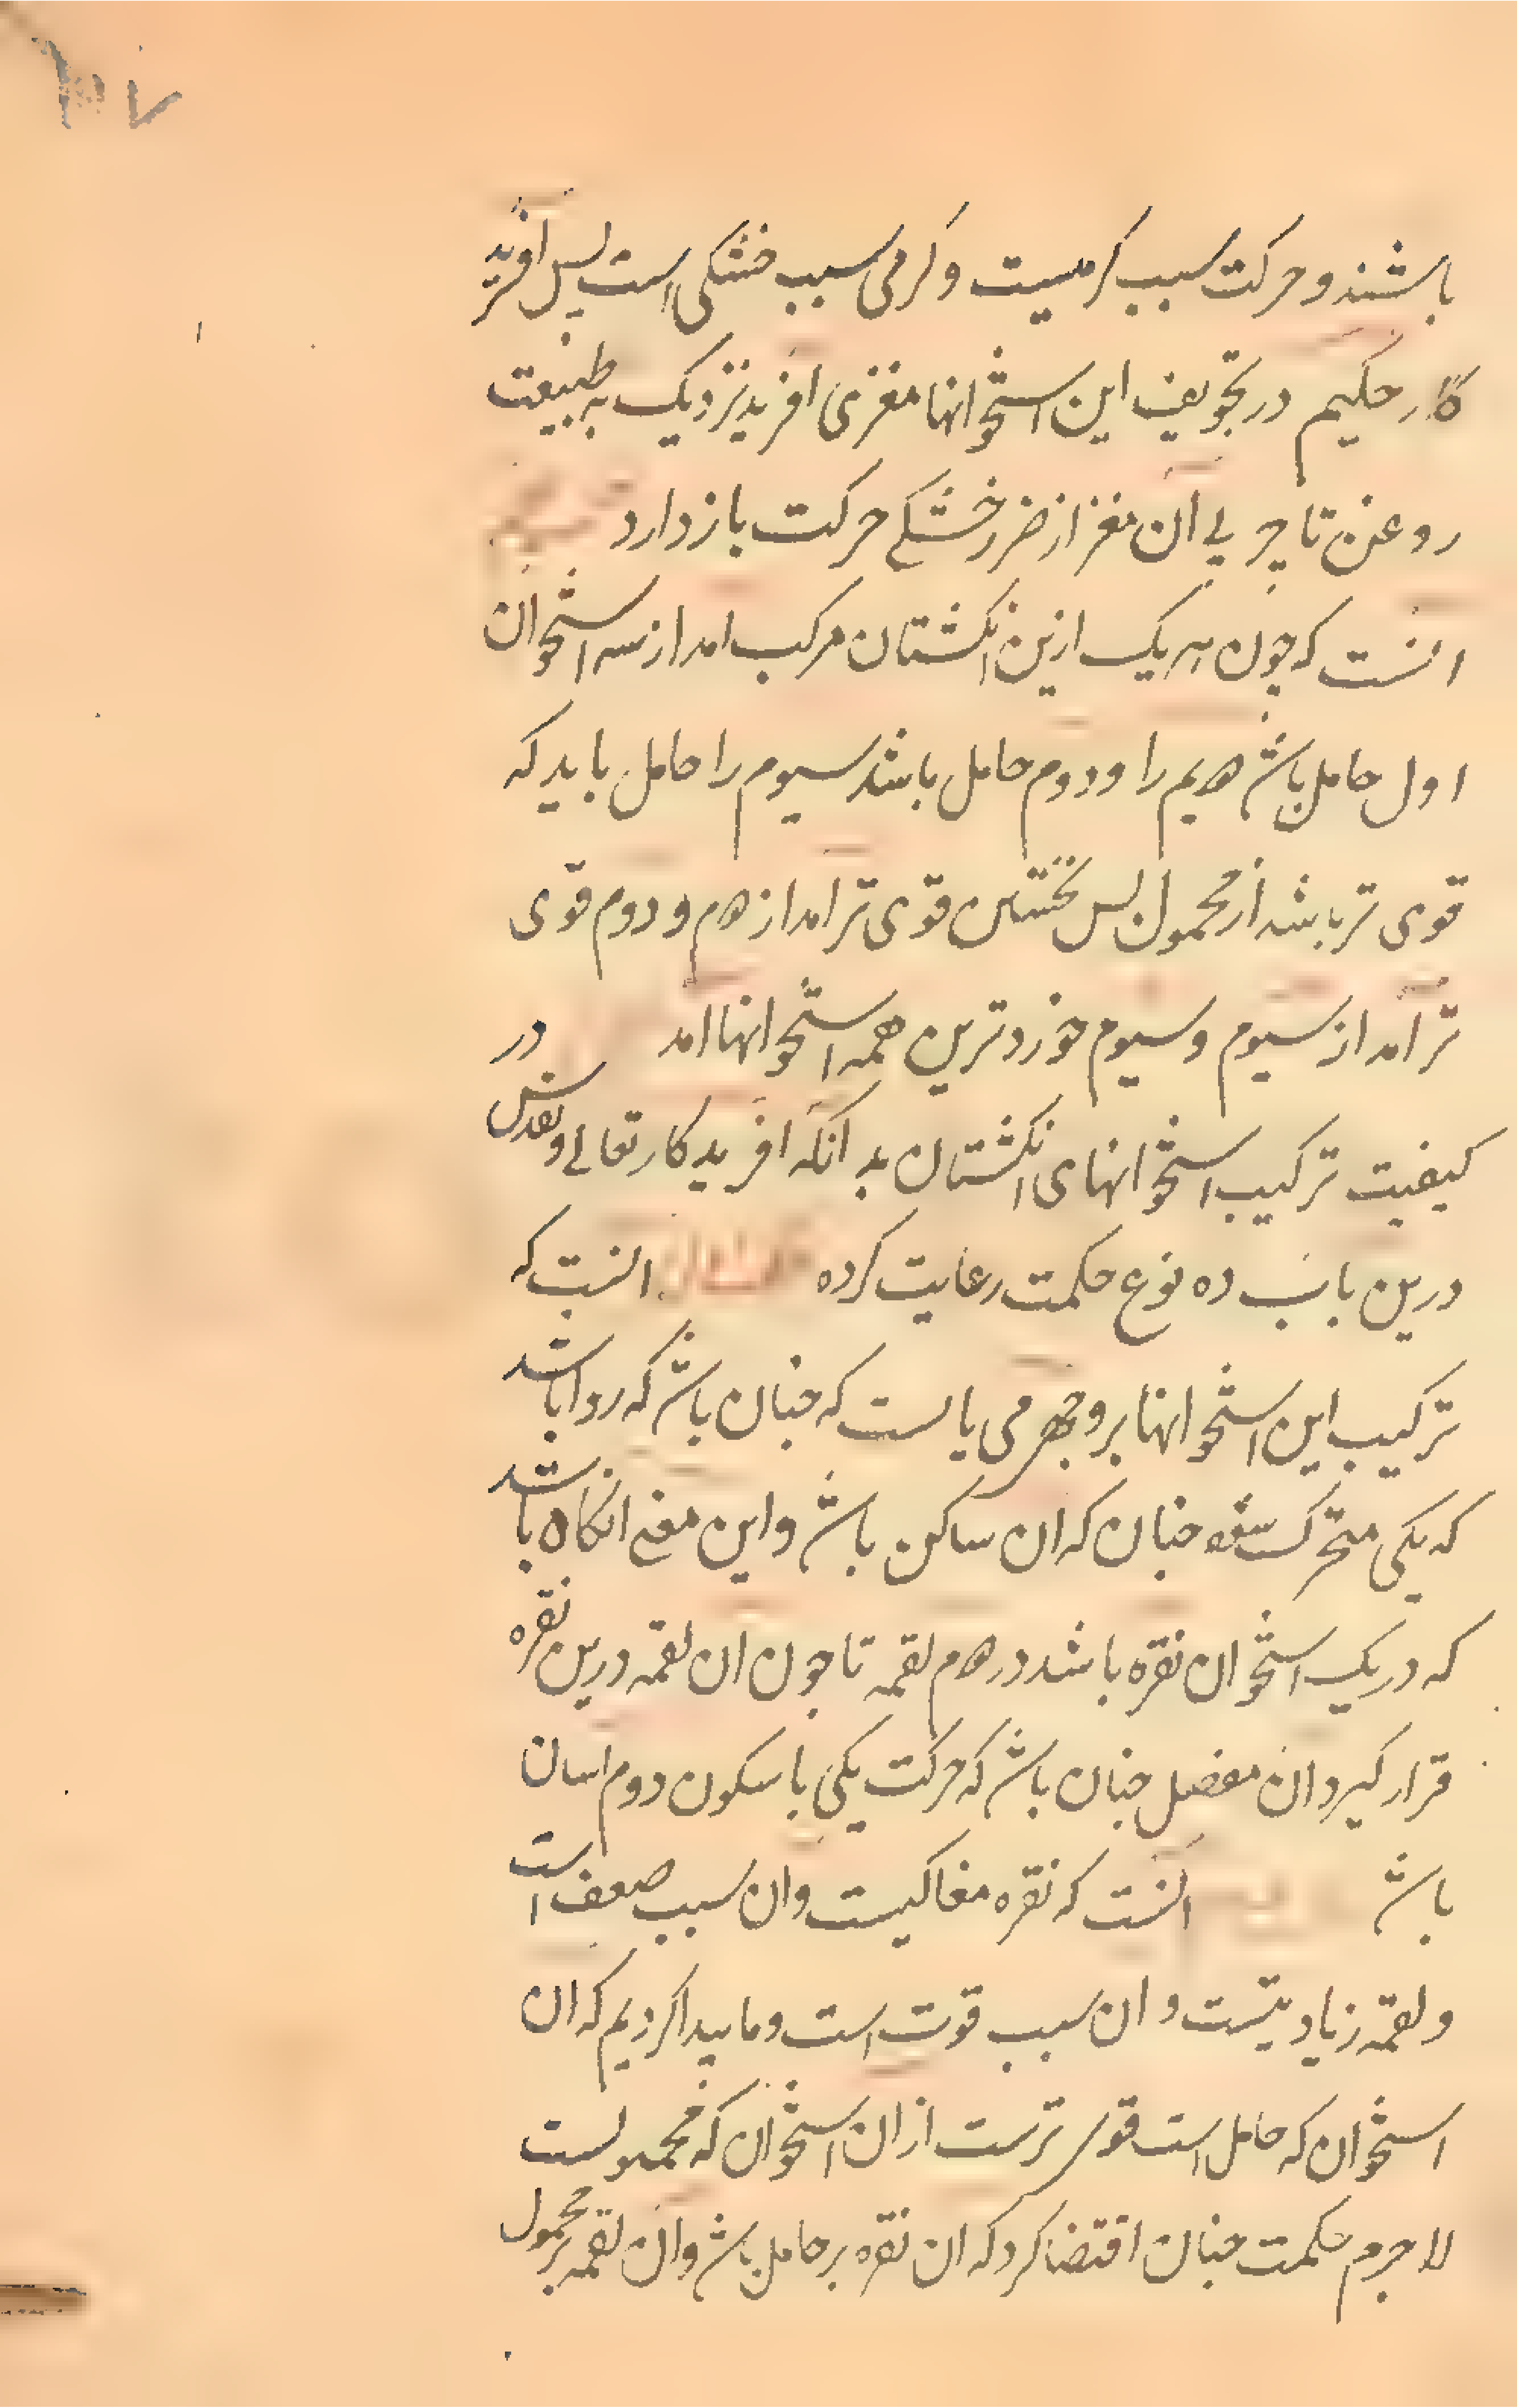 ۱۰۷
باشند و حرکت سبب کرمیست و کرمی سبب خشکی است پس آفرید
کار حکیم در تجویف این استخوانها مغزی افرید نزدیک به طبیعت
روغن تا چربی آن مغز از ضرر خشکے حرکت باز دارد
انست که چون هر یک ازین انکشتان مرکب امد از سه استخوان
اول حامل باشد دویم را و دوم حامل باشد سیوم را حامل باید که
قوی تر باشد از محمول پس نخستین قوی تر امد از دوم و دوم قوی
تر امد از سیوم و سیوم خوردترین همه استخوانها امد در
کیفیت ترکیب استخوانهای انکشتان بدانکه افریدکار تعالے و تقدس
درین باب ده نوع حکمت رعایت کرده انست که
ترکیب این استخوانها بر وجهی می بایست که چنان باشد که روا باشد
که یکی متحرک شود چنان که ان ساکن باشد و این معنے انکاه باشد
که در یک استخوان نقره باشد در دوم لقمه تا چون ان لقمه درین نقره
قرار کیرد ان مفصل چنان باشد که حرکت یکی با سکون دوم اسان
باشد انست که نقره مغاکیست و ان سبب ضعف است
و لقمه زیادتیست و ان سبب قوت است و ما پیدا کردیم که ان
استخوان که حامل است قوی ترست از ان استخوان که محمولست
لاجرم حکمت چنان اقتضا کرد که ان نقره بر حامل باشد و ان لقمه بر محمول